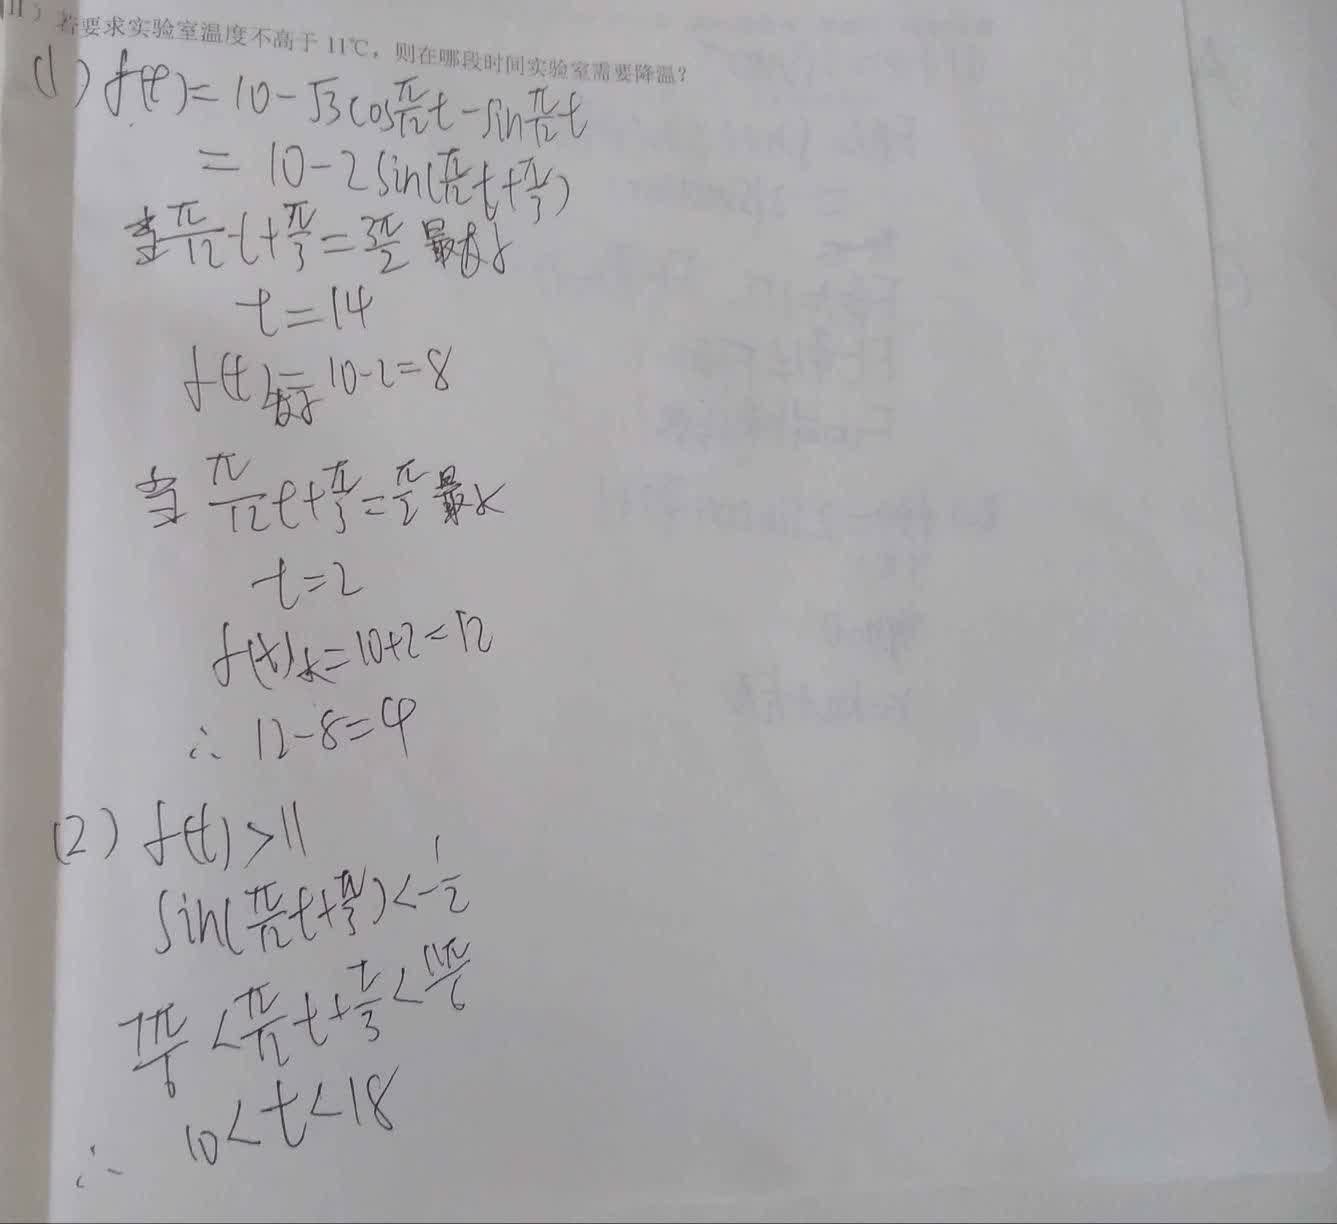 II）若要求实验室温度不高于 11℃，则在哪段时间实验室需要降温？
(1) f(t)=10-√3cosπ/12t-sinπ/12t
=10-2sin(π/12t+π/3)
当π/12t+π/3=3π/2 最
t=14
f(t)=10-2=8
当 π/12t+π/3=π/2 最大
t=2
f(t)大=10+2=12
∴ 12-8=4
(2) f(t)>11
sin(π/12t+π/3)<-1/2
7π/6<π/12t+π/3<11π/6
∴ 10<t<18